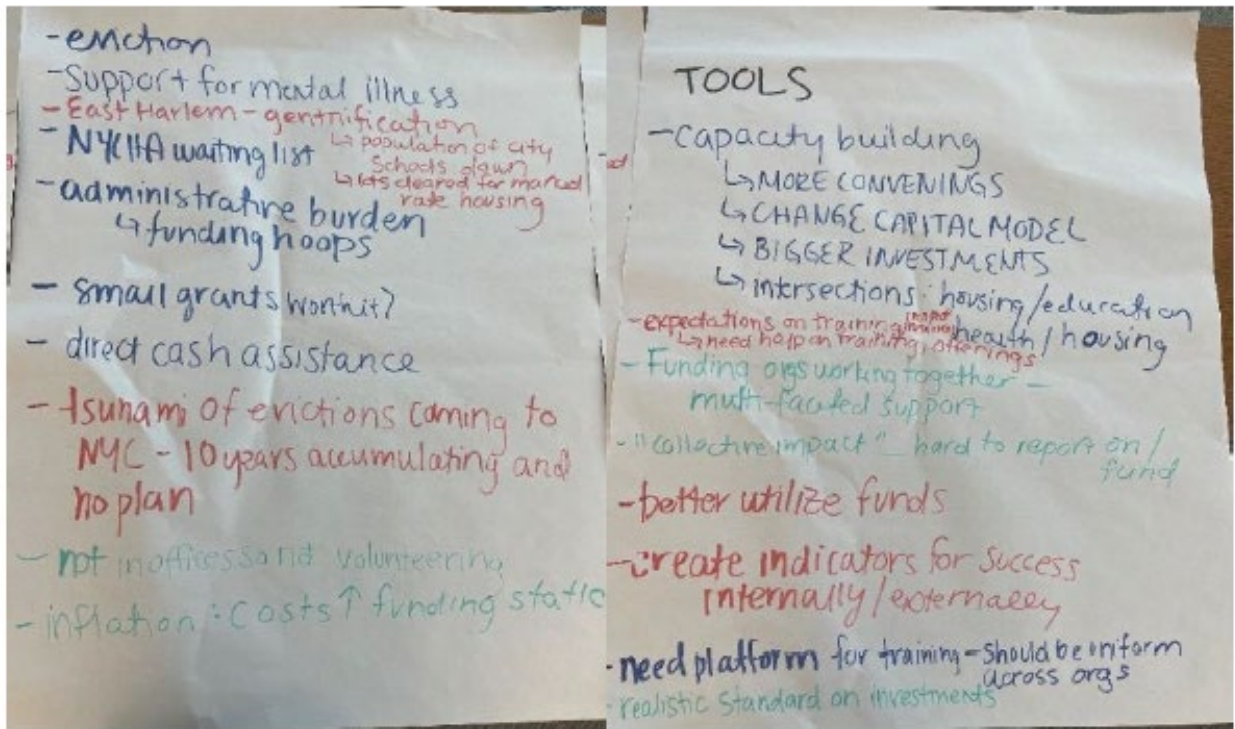 - eviction
- Support for mental illness
- East Harlem - gentrification
↳ population of city
schools down
↳ lots cleared for market
rate housing
- NYCHA waiting list
- administrative burden
↳ funding hoops
- small grants worth it?
- direct cash assistance
- tsunami of evictions coming to
NYC - 10 years accumulating and
no plan
- not in offices and volunteering
- inflation: costs ↑ funding static
TOOLS
- capacity building
↳ MORE CONVENINGS
↳ CHANGE CAPITAL MODEL
↳ BIGGER INVESTMENTS
↳ intersections: housing/education
health/housing
- expectations on training
↳ need help on training, offerings
- Funding orgs working together -
multi-faceted support
- "collective impact" - hard to report on/
fund
- better utilize funds
- create indicators for success
internally/externally
- need platform for training - should be uniform
across orgs
- realistic standard on investments